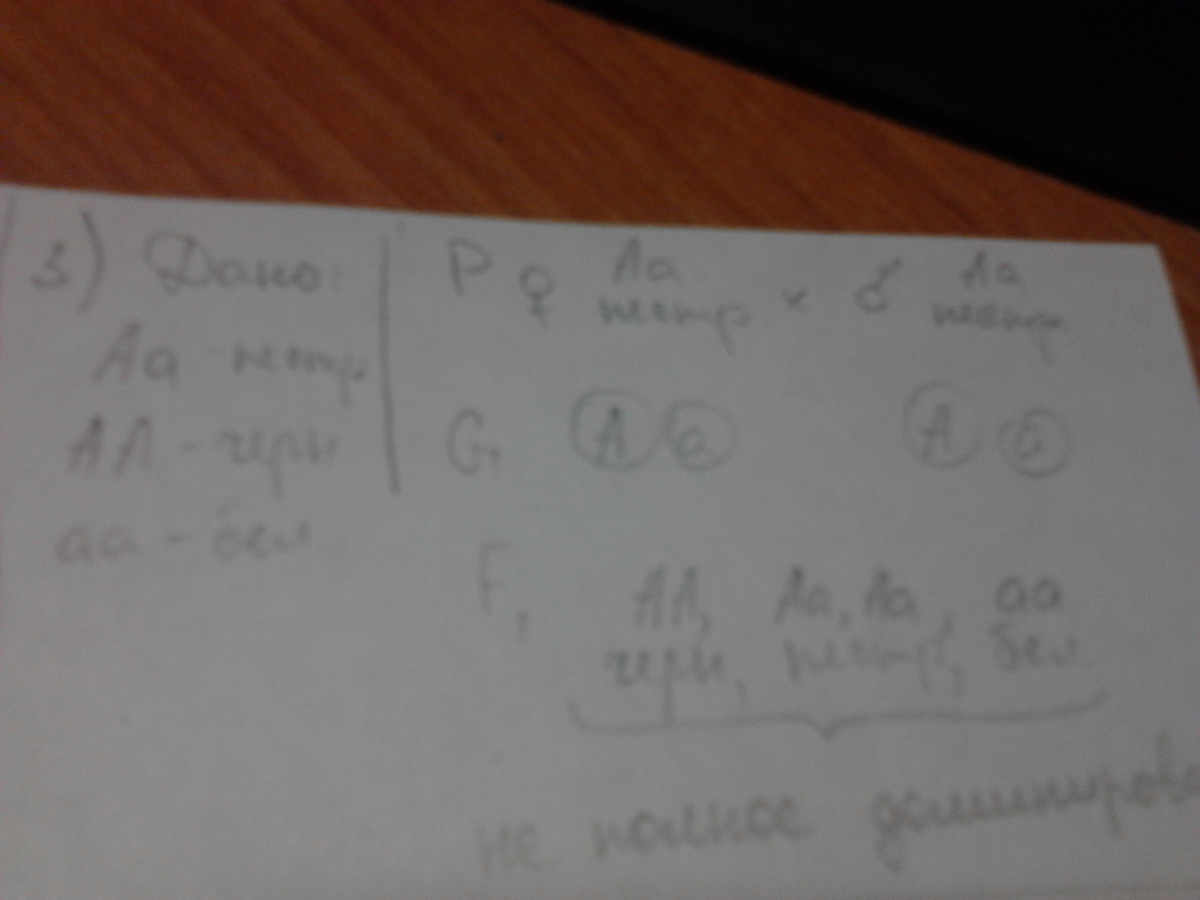 3) Дано:
Аа - пестр.
АА - черн
аа - бел.
P ♀ Аа × ♂ Аа
пестр пестр
G А а А а
F₁ АА, Аа, Аа, аа
черн, пестр, бел
не полное доминирова